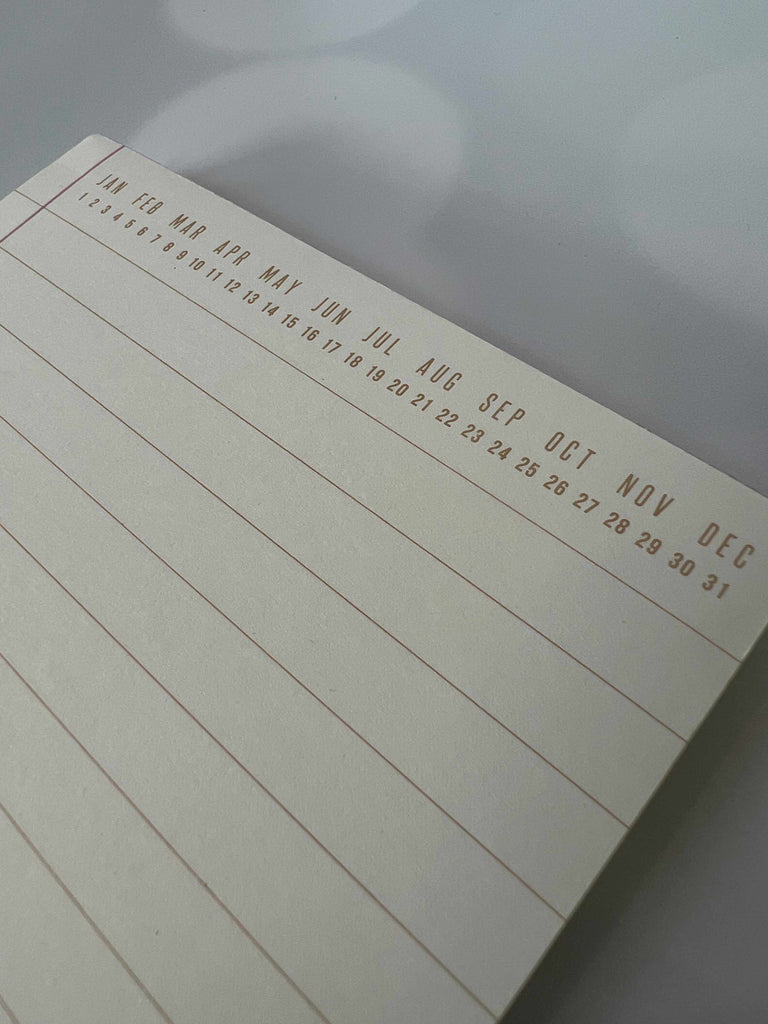 JAN FEB MAR APR MAY JUN JUL AUG SEP OCT NOV DEC
1 2 3 4 5 6 7 8 9 10 11 12 13 14 15 16 17 18 19 20 21 22 23 24 25 26 27 28 29 30 31